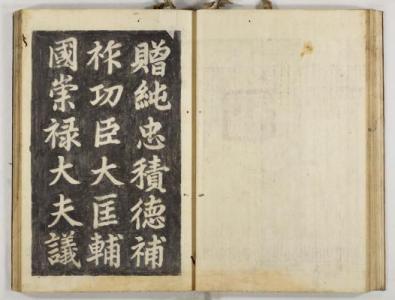 贈純忠積德補
祚功臣大匡輔
國崇禄大夫議